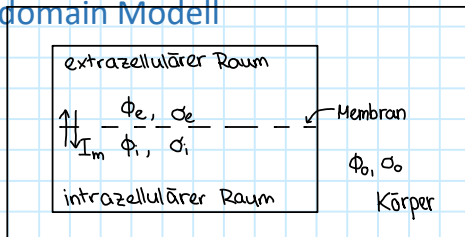 domain Modell
extrazellulärer Raum
ϕe, σe
Membran
Im ϕi, σi
ϕo, σo
intrazellulärer Raum
Körper